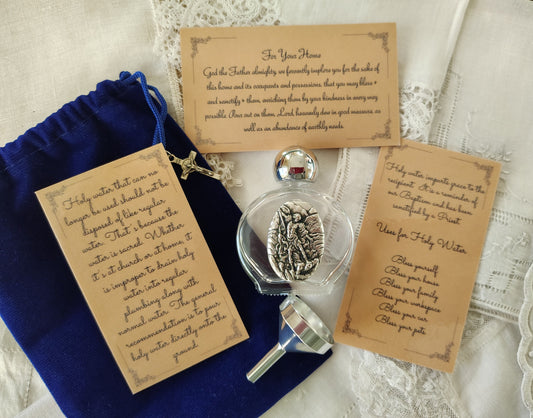 For Your Home
God the Father almighty, we fervently implore you for the sake of
this home and its occupants and possessions, that you may bless+
and sanctify + them, enriching them by your kindness in every way
possible. Pour out on them, Lord, heavenly dew in good measure, as
well as an abundance of earthly needs.
Holy water that can no
longer be used should not be
disposed of like regular
water. That's because the
water is sacred. Whether
it's at church or at home, it
is improper to drain holy
water into regular
plumbing along with
normal water. The general
recommendation is to pour
holy water directly onto the
ground.
Holy water imparts grace to the
recipient. It is a reminder of
our Baptism and has been
sanctified by a Priest.
Uses for Holy Water
Bless yourself
Bless your house
Bless your family
Bless your workspace
Bless your car
Bless your pets